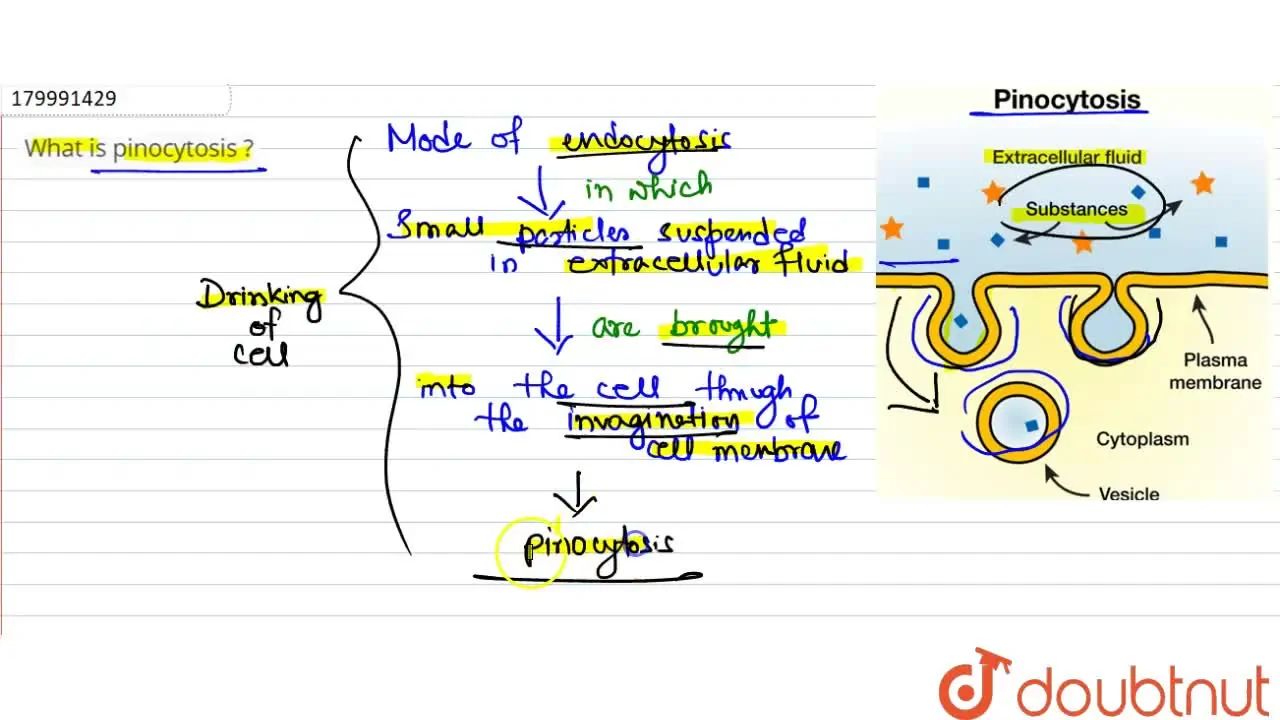 179991429
What is pinocytosis ?
Mode of endocytosis
in which
Small particles suspended
in extracellular fluid
are brought
into the cell through
the invagination of
cell membrane
pinocytosis
Drinking
of
cell
Pinocytosis
Extracellular fluid
Substances
Plasma
membrane
Cytoplasm
Vesicle
doubtnut